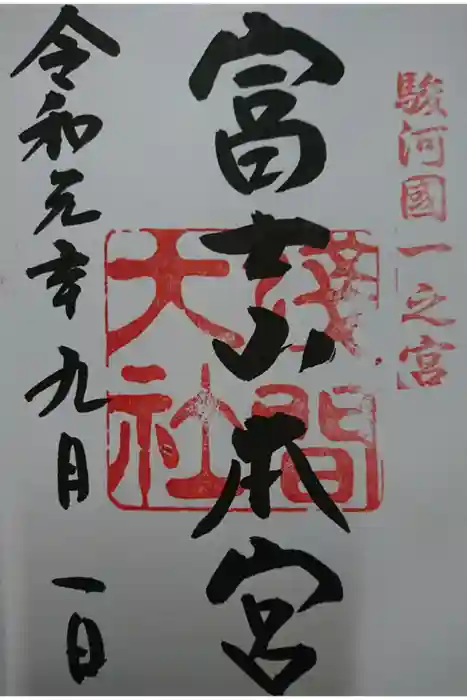 駿河國一之宮
富士山本宮
浅間
大社
令和元年九月一日